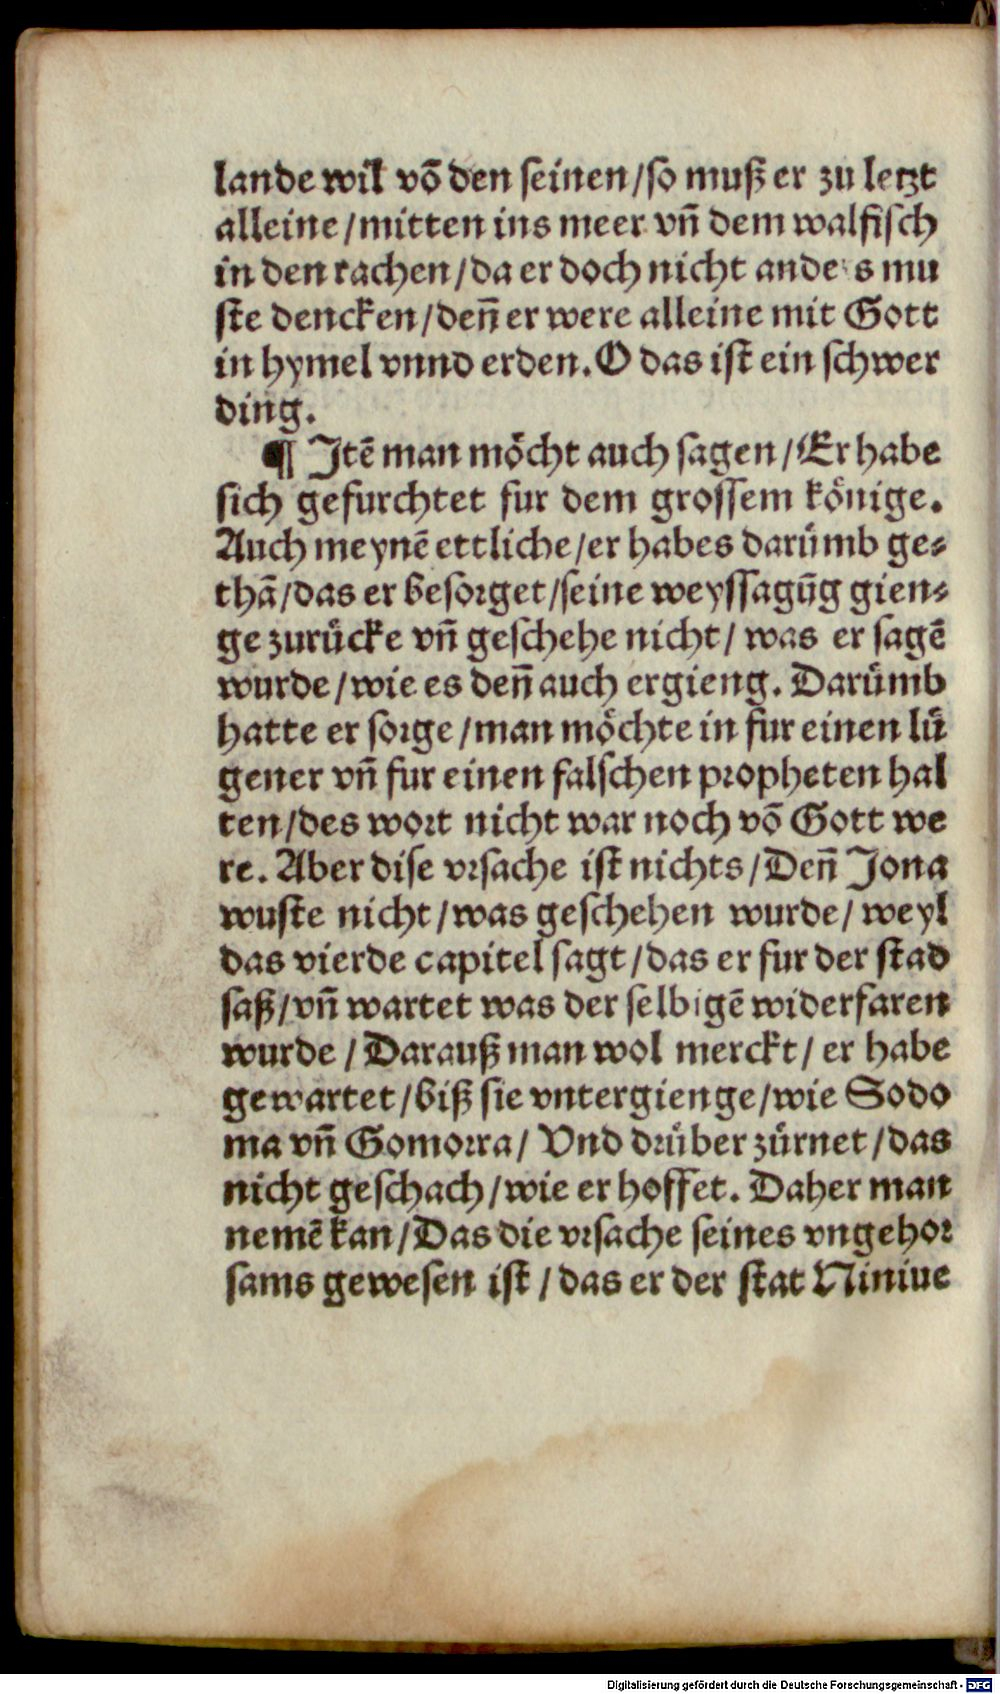 lande wil võ den seinen/so muß er zu letzt
alleine/mitten ins meer vñ dem walfisch
in den rachen/da er doch nicht andes mu
ste dencken/deñ er were alleine mit Gott
in hymel vnnd erden. O das ist ein schwer
ding.
¶ Itẽ man moͤcht auch sagen/Er habe
sich gefurchtet fur dem grossem koͤnige.
Auch meynẽ ettliche/er habes daruͤmb ge⸗
thã/das er besorget/seine weyssagũg gien⸗
ge zuruͤcke vñ geschehe nicht/ was er sagẽ
wurde/wie es deñ auch ergieng. Daruͤmb
hatte er sorge/man moͤchte in fur einen luͤ
gener vñ fur einen falschen propheten hal
ten/des wort nicht war noch võ Gott we
re. Aber dise vrsache ist nichts/Deñ Jona
wuste nicht/was geschehen wurde/ weyl
das vierde capitel sagt/das er fur der stad
saß/vñ wartet was der selbigẽ widerfaren
wurde/Darauß man wol merckt/ er habe
gewartet/biß sie vntergienge/wie Sodo
ma vñ Gomorra/ Vnd druͤber zuͤrnet/das
nicht geschach/wie er hoffet. Daher man
nemẽ kan/Das die vrsache seines vngehor
sams gewesen ist/das er der stat Niniue
Digitalisierung gefördert durch die Deutsche Forschungsgemeinschaft - DFG